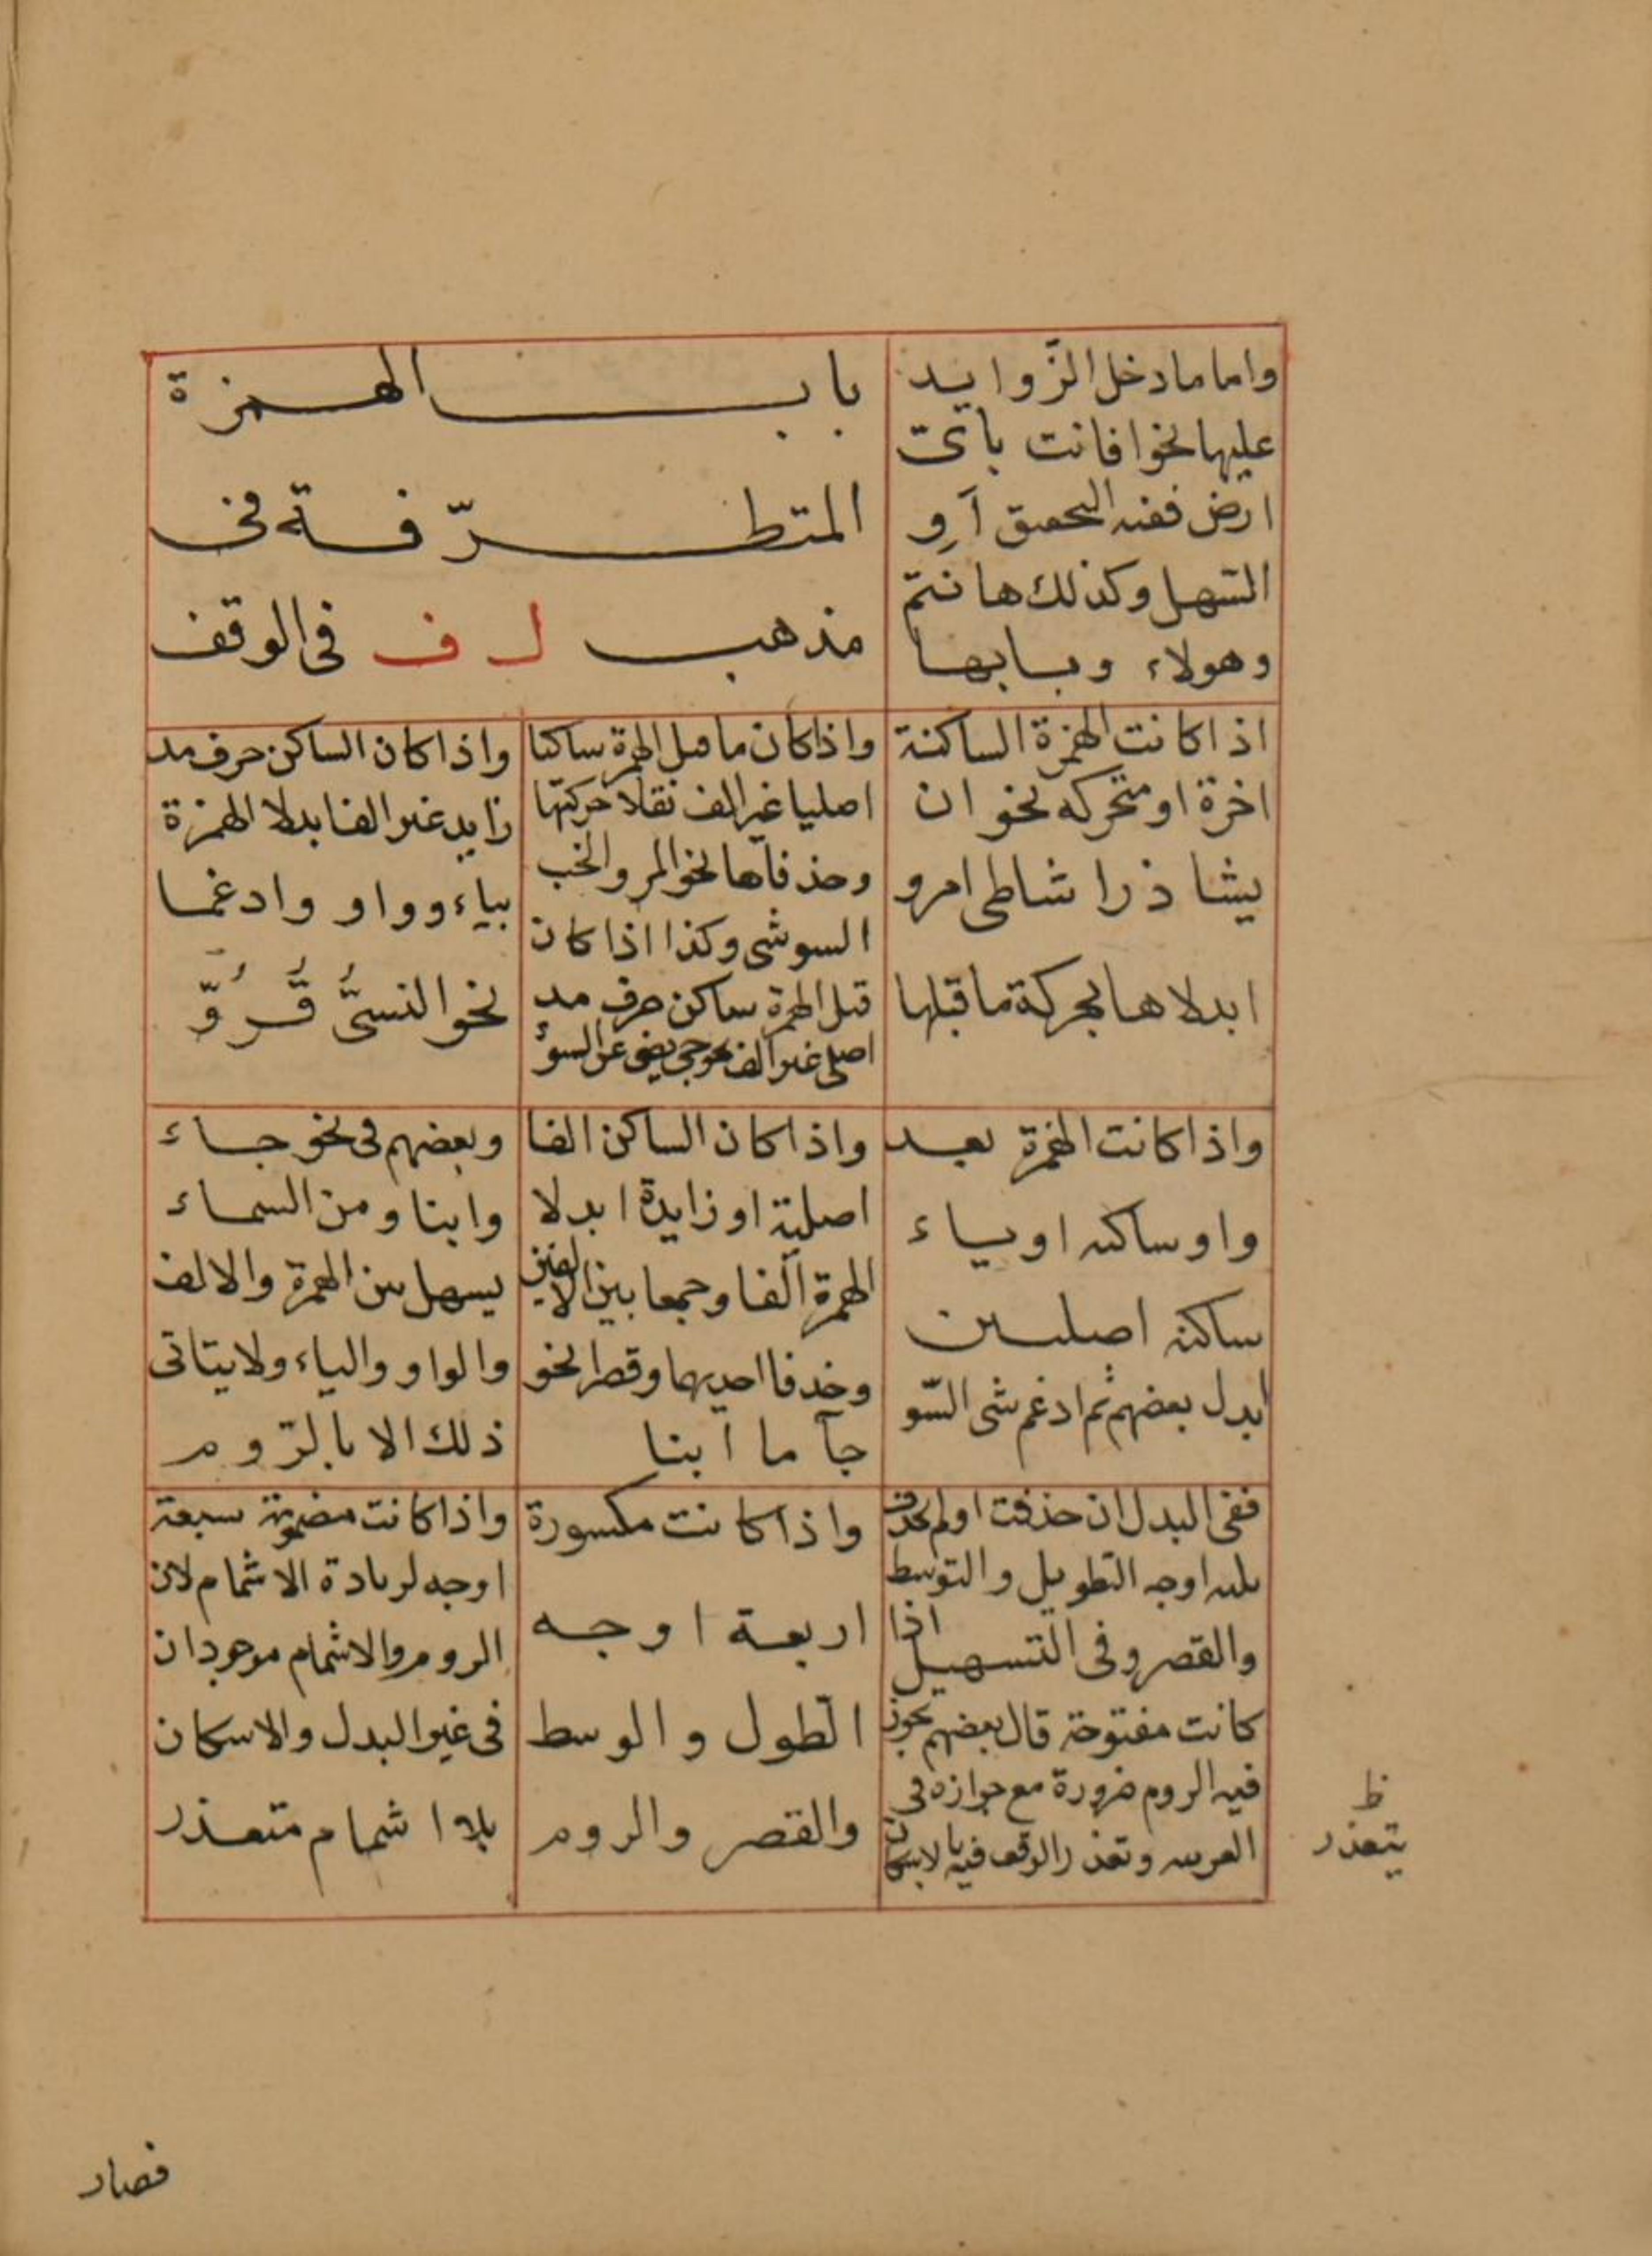 واما ما دخل الزّوايد
عليها نحو افانت باىّ
ارض ففيه التحقيق آو
التسهل وكذلك هانتم
وهولاء وبابها
باب الهمزة
المتطرّفة فى
مذهب ل ف فى الوقف
اذا كانت الهمزة الساكنة
اخرة او متحركه نحو ان
يشا ذرا شاطى امرو
ابدلاها بحركة ما قبلها
واذا كان ما قبل الهمزة ساكنا
اصليا غير الف نقلا حركتها
وحذفاها نحو المر والخب
السو شى وكذا اذا كان
قبل الهمزة ساكن حرف مد
اصلى غير الف نحو جى يضى عن السوء
واذا كان الساكن حرف مد
زايد غير الف ابدلا الهمزة
بياء وواو وادغما
نحو النسىُّ قُرُوّ
واذا كانت الهمزة بعد
واو ساكنه او ياء
ساكنه اصليين
ابدل بعضهم ثم ادغم شى السّو
واذا كان الساكن الفا
اصلية او زايدة ابدلا
الهمزة الفا وجمعا بين الالفين
وحذفا احديهما وقصرا نحو
جآ ما ابنا
وبعضهم فى نحو جاء
وابنا و من السماء
يسهل بين الهمزة والالف
والواو والياء ولا يتاتى
ذلك الا بالرّوم
ففى البدل ان حذفت او لم تحذف
ثلثه اوجه التطويل والتوسط
والقصر وفى التسهيل اذا
كانت مفتوحة قال بعضهم يجوز
فيه الروم ضرورة مع جوازه فى
العربيه وتعذر الوقف فيه بالاسكان
واذا كانت مكسورة
اربعة اوجه
الطول والوسط
والقصر والروم
واذا كانت مضمومة سبعة
اوجه لزيادة الاشمام لان
الروم والاشمام موجودان
فى غير البدل والاسكان
بلا اشمام متعذر
ظ
يتعذر
فصار